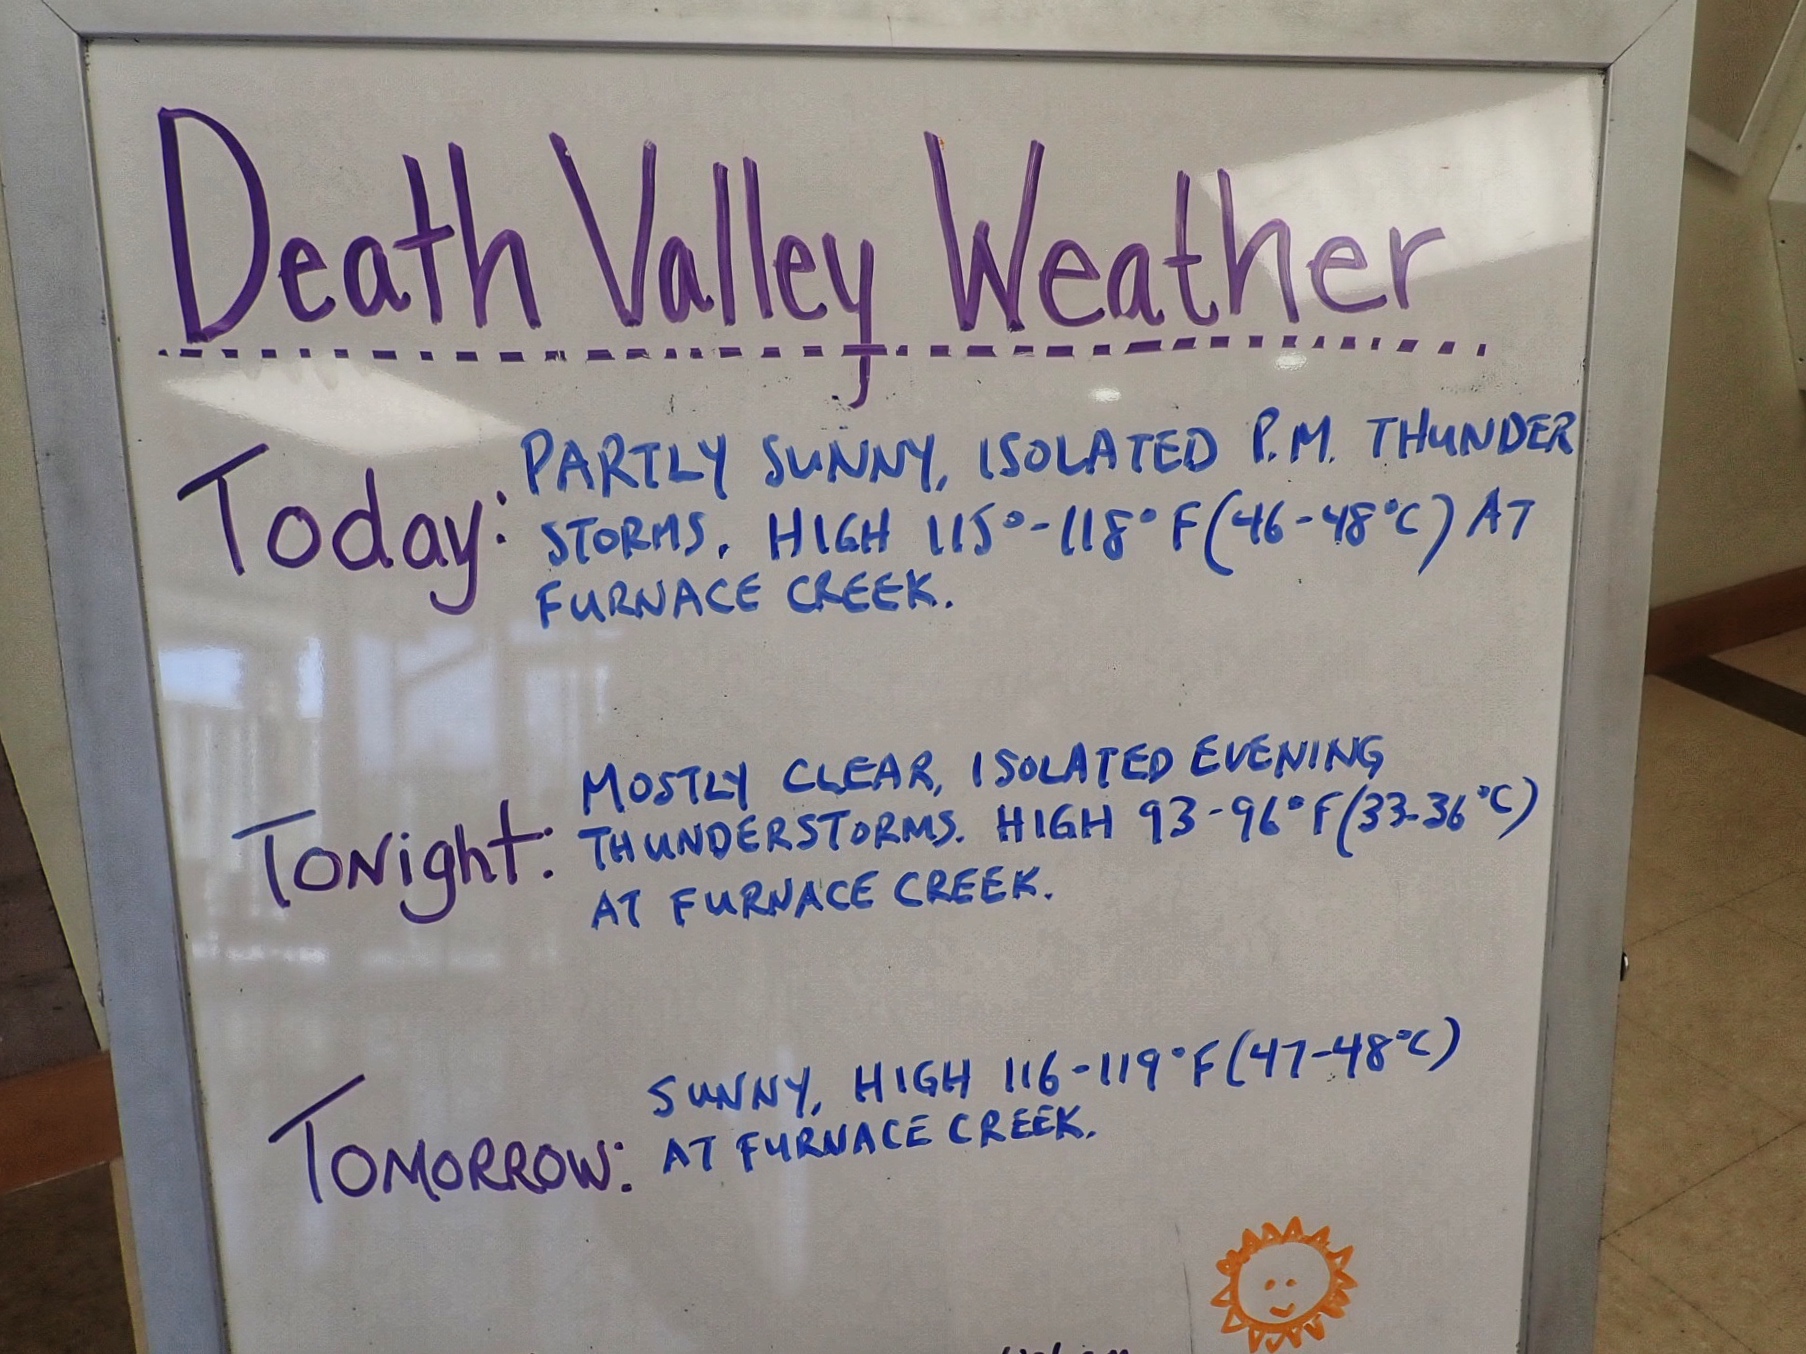 Death Valley Weather
Today: PARTLY SUNNY, ISOLATED P.M. THUNDER
STORMS. HIGH 115°-118°F (46-48°C) AT
FURNACE CREEK.
Tonight: MOSTLY CLEAR, ISOLATED EVENING
THUNDERSTORMS. HIGH 93-96°F (33-36°C)
AT FURNACE CREEK.
TOMORROW: SUNNY, HIGH 116-119°F (47-48°C)
AT FURNACE CREEK.